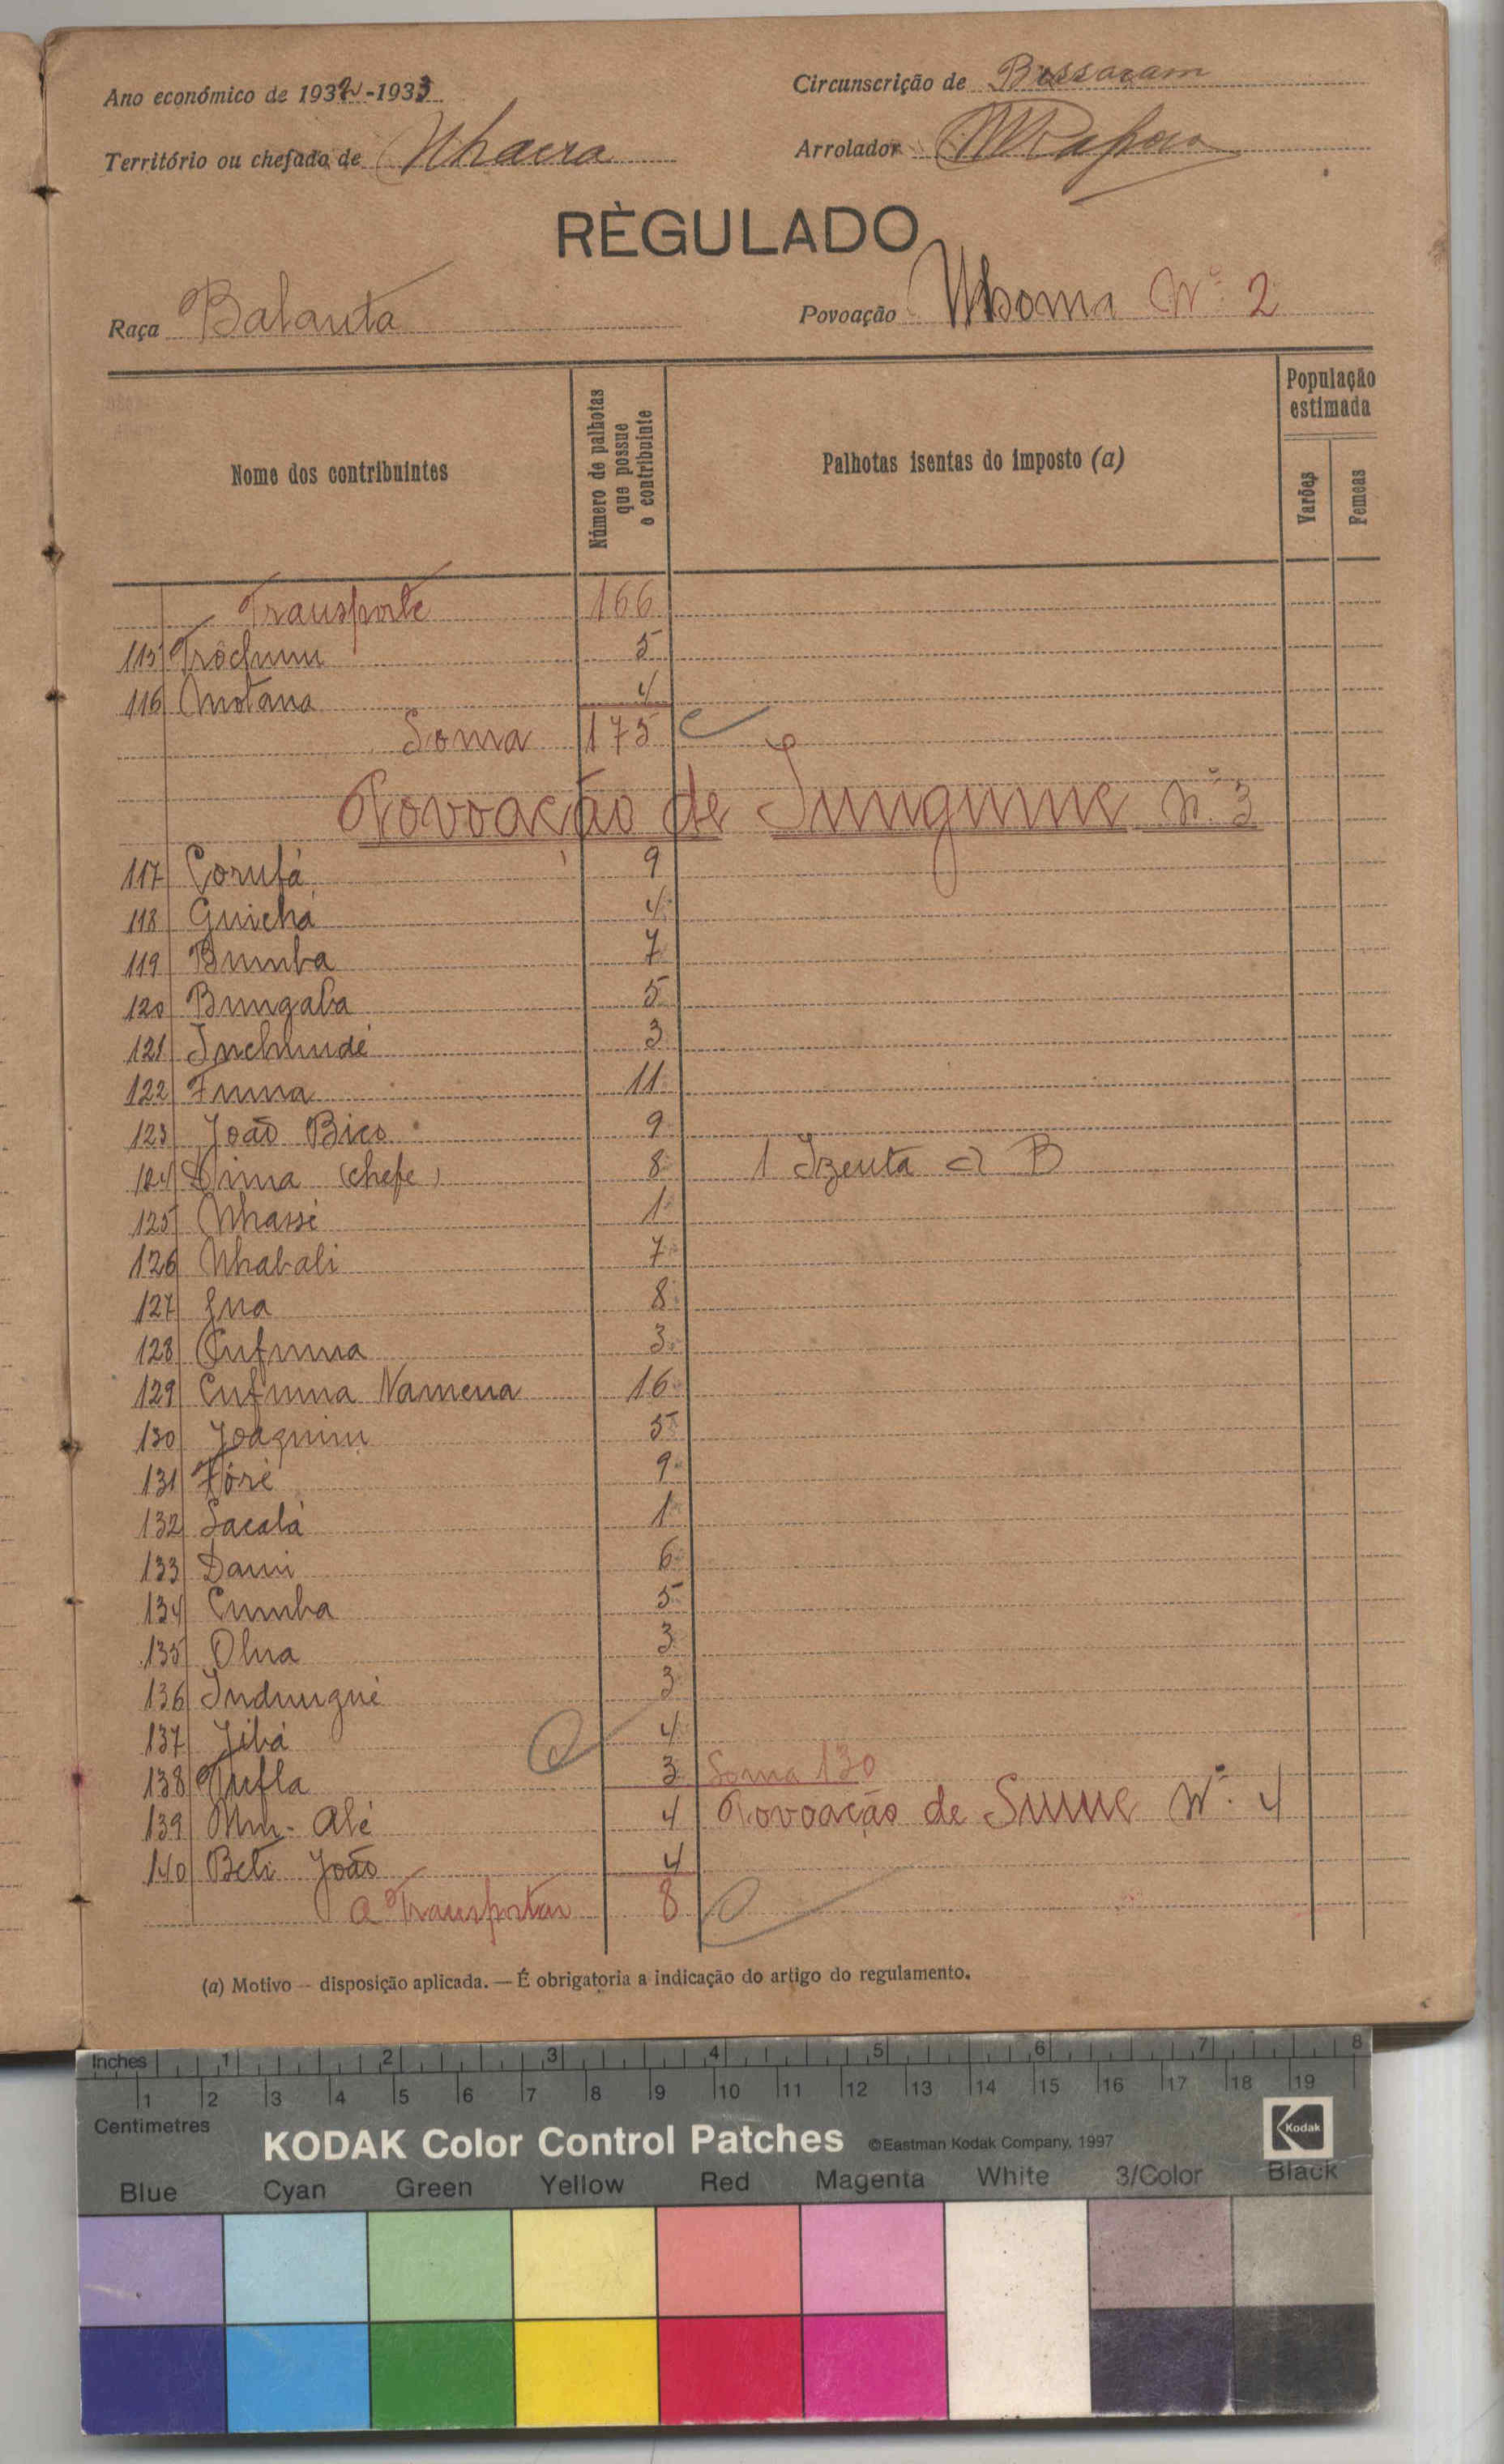 Ano económico de 1932-1933
Circunscrição de Bissaram
Território ou chefado de Nhacra
Arrolador
RÈGULADO
Raça Balanta
Povoação Nhoma Nº 2
Nome dos contribuintes
Número de palhotas que possue o contribuinte
Palhotas isentas do imposto (a)
População estimada
Varões
Femeas
Transporte 166
115 Trôchum 5
116 Motana 4
Soma 175
Povoação de Sungume Nº 3
117 Corufá 9
118 Guichá 4
119 Bumba 7
120 Bungaba 5
121 Inchudé 3
122 Funa 11
123 João Bico 9
124 Dima (chefe) 8 1 Izenta a) B
125 Nhassé 1
126 Nhabali 7
127 8
128 Cufuma 3
129 Cufuma Namena 16
130 Joaquim 5
131 Fóré 9
132 Sacalá 1
133 Dami 6
134 Cumba 5
135 Olna 3
136 Indungué 3
137 Jibá 4
138 Tufla 3 Soma 130
139 Alé 4 Povoação de Sume Nº. 4
140 Beti João 4
A Transportar 8
(a) Motivo — disposição aplicada. — É obrigatoria a indicação do artigo do regulamento.
Inches 1 2 3 4 5 6 7 8
1 2 3 4 5 6 7 8 9 10 11 12 13 14 15 16 17 18 19
Centimetres
KODAK Color Control Patches ©Eastman Kodak Company, 1997 Kodak
Blue Cyan Green Yellow Red Magenta White 3/Color Black